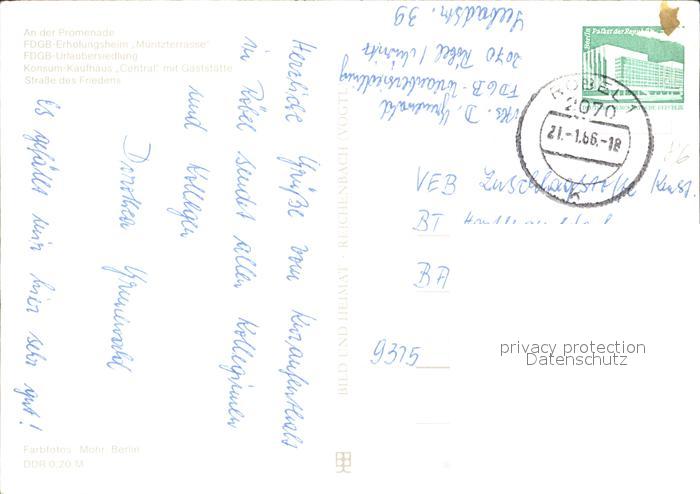 An der Promenade
FDGB-Erholungsheim „Müritzterrasse"
FDGB-Urlaubersiedlung
Konsum-Kaufhaus „Central" mit Gaststätte
Straße des Friedens
Herzliche Grüße vom Kuraufenthalt
in Röbel sendet allen Kolleginnen
und Kollegen
Dorothea Grunewald
Es gefällt mir hier sehr gut!
Farbfotos: Mohr, Berlin
DDR 0,20 M
BILD UND HEIMAT · REICHENBACH
D. Grunewald
FDGB-Urlaubersiedlung
2070 Röbel / Müritz
Seebadstr. 39
Berlin Palast der Republik
RÖBEL 1
2070
21.-1.86.-18
k
VEB
BT
BA
9315
privacy protection
Datenschutz